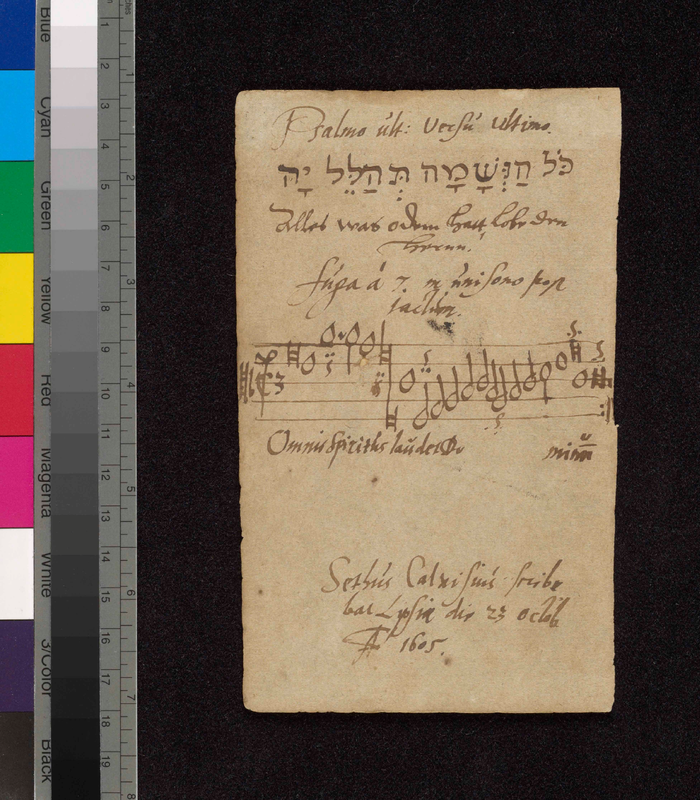 Blue
Cyan
Green
Yellow
Red
Magenta
White
3/Color
Black
1
2
3
4
5
6
7
8
9
10
11
12
13
14
15
16
17
18
19
1
2
3
4
5
6
7
8
Psalmo ult: Versu ultimo.
כֹּל הַנְּשָׁמָה תְּהַלֵּל יָהּ
Alles was odem hatt lobe den
herrn.
fuga à 7. in unisono post
tactum.
3
Omnis spiritus laudet Do minum
Sethus Calvisius scribe
bat Lipsiae die 23 octob
A° 1605.